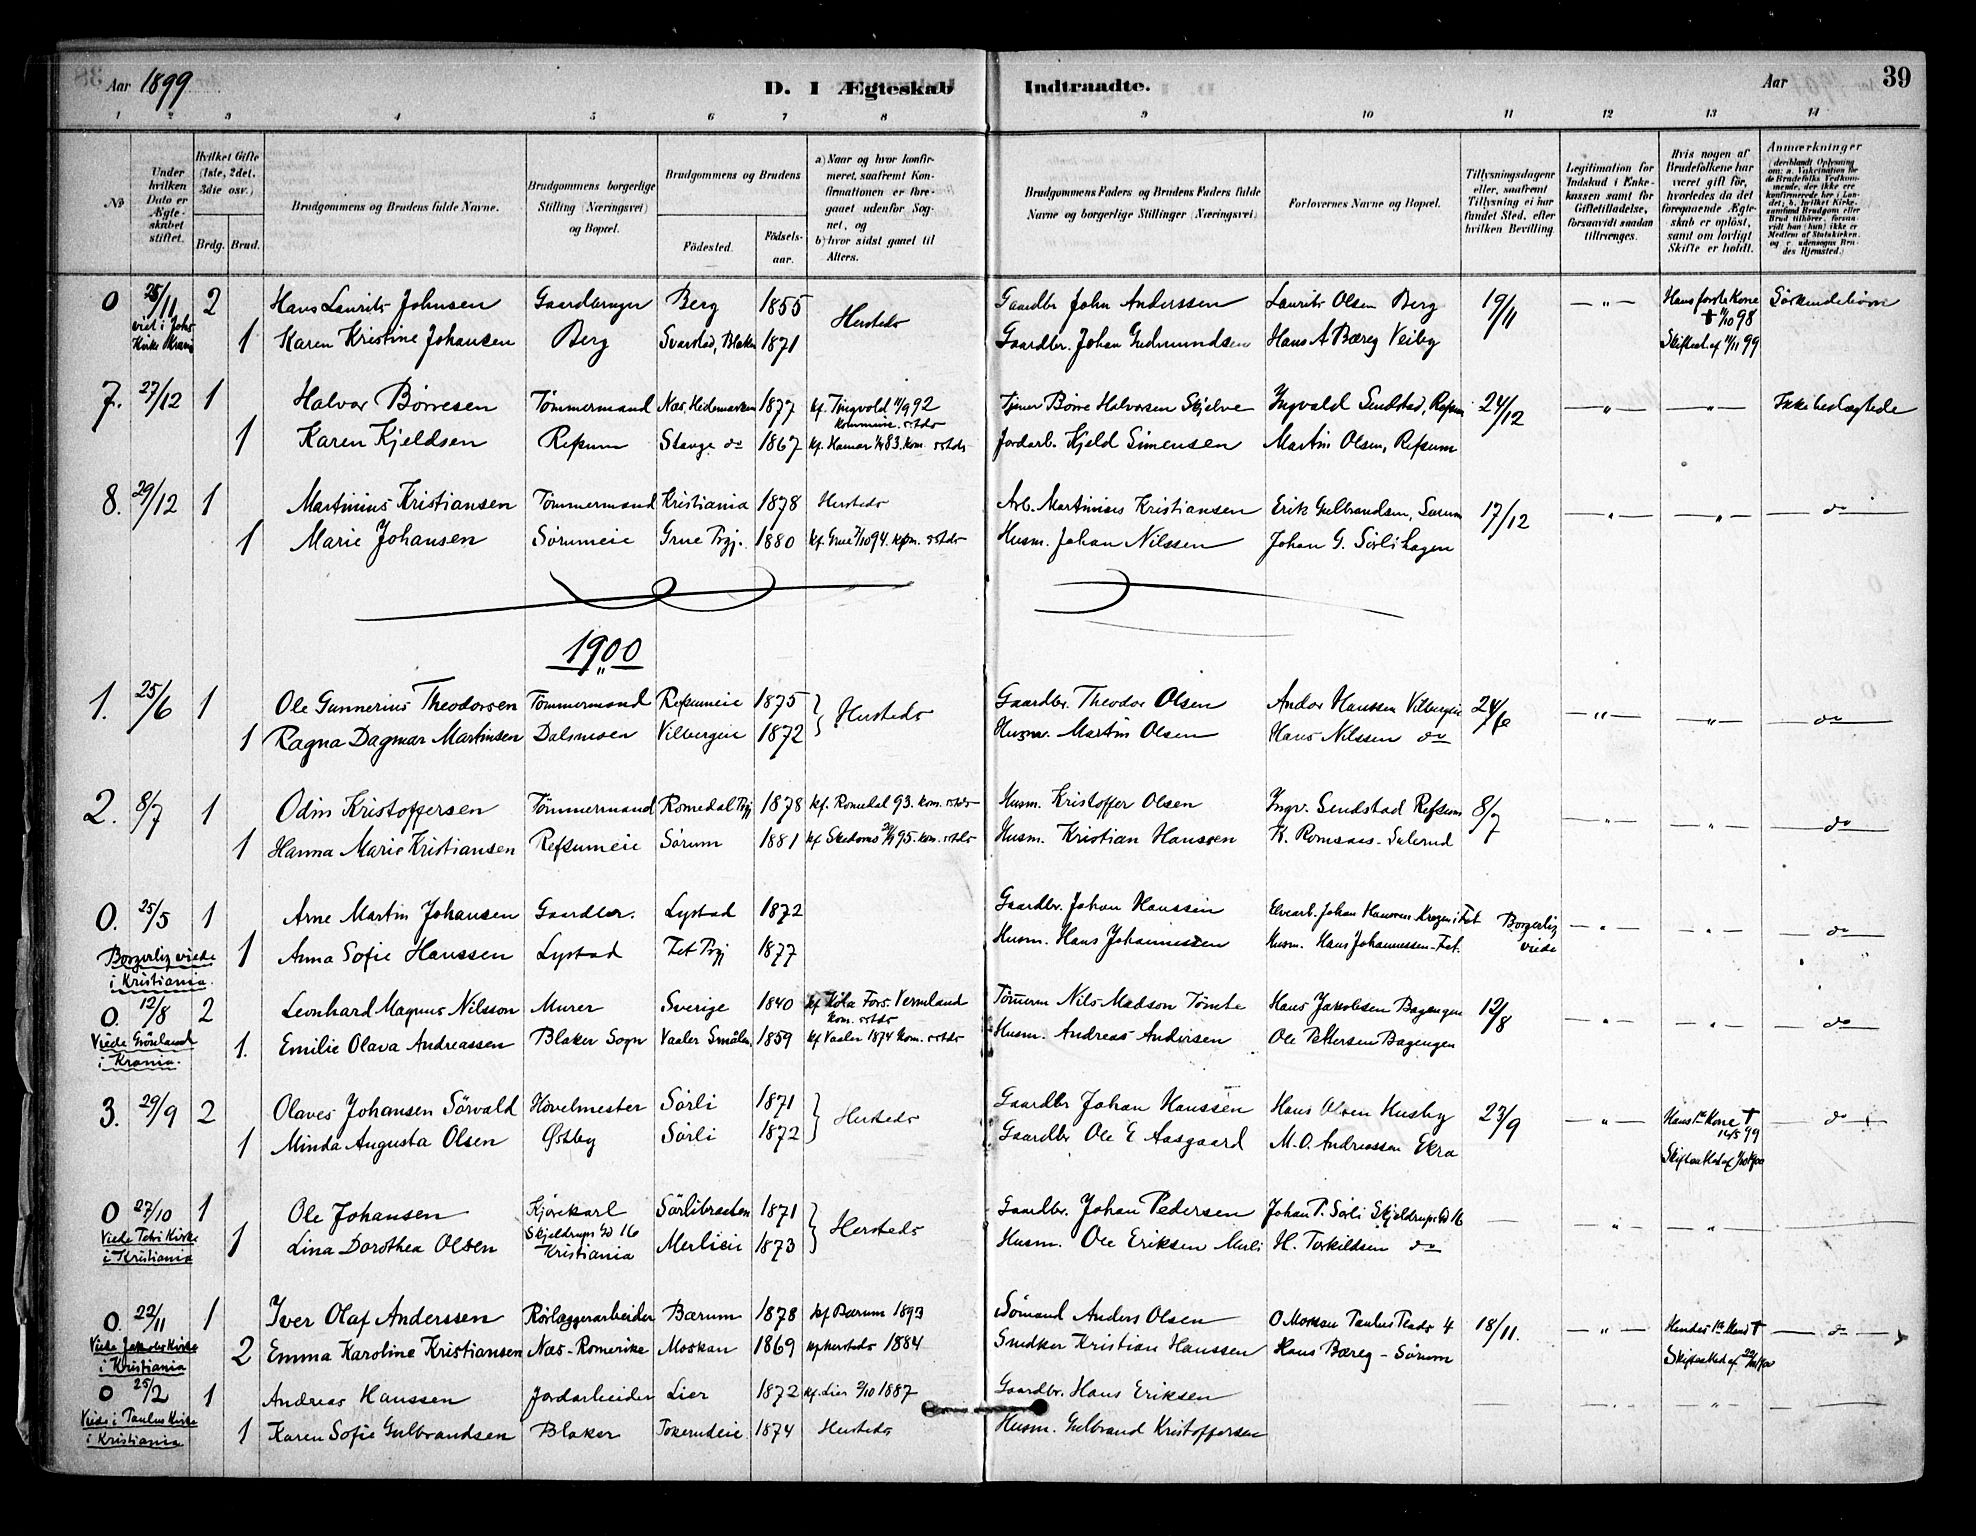 Aar 1899
D. I Ægteskab Indtraadte.
Aar 39
1 2 3 4 5 6 7 8 9 10 11 12 13 14
No
Under hvilken Dato er Ægteskabet stiftet.
Hvilket Gifte (1ste, 2det, 3die osv.)
Brdg. Brud.
Brudgommens og Brudens fulde Navne.
Brudgommens borgerlige Stilling (Næringsvei) og Bopæl.
Brudgommens og Brudens
Födested. Födselsaar.
a) Naar og hvor konfirmeret, saafremt Konfirmationen er foregaaet udenfor Sognet, og
b) hvor sidst gaaet til Alters.
Brudgommens Faders og Brudens Faders fulde Navne og borgerlige Stillinger (Næringsvei)
Forlovernes Navne og Bopæl.
Tillysningsdagene eller, saafremt Tillysning ei har fundet Sted, efter hvilken Bevilling.
Legitimation for Indskud i Enkekassen samt for Giftetilladelse, forsaavidt saadan tiltrænges.
Hvis nogen af Brudefolkene har været gift för, hvorledes da det foregaaende Ægteskab er oplöst, samt om lovligt Skifte er holdt.
Anmærkninger
0 25/11 2 Hans Laurits Johnsen Gaardbruger Berg 1855 Hersteds Gaardbr. John Anderssen Laurits Olsen Berg 19/11 — " — Hans förste Kone † 11/10 98 Sörkendebörn
viet i Johs Kirke Krania 1 Karen Kristine Johansen Berg Svarstad, Blaker 1871 Gaardbr. Johan Gudmundsen Hans A Bæreg Veiby Skifteat. af 11/11 99
7. 27/12 1 Halvor Börresen Tömmermand Næs, Hedemarken 1877 kf. Tingvold 11/9 92 Börre Halvorsen Skjelve Ingvald Sendstad, Refsum 24/12 — " — — " — Ikke beslægtede
kommun. ststds
1 Karen Kjeldsen Refsum Stange do 1867 kf. Hamar 83. kom. ststds Jordarb. Kjeld Simensen Martin Olsen, Refsum
8. 29/12 1 Martinius Kristiansen Tömmermand Kristiania 1878 Hersteds Arb. Martinius Kristiansen Erik Gulbrandsen, Sörum 17/12 — " — — " — — do —
1 Marie Johansen Sörumeie Grue Prgj. 1880 kf. Grue 7/10 94. kom. ststds Husm. Johan Nilssen Johan G. Sörlihagen
1900
1. 25/6 1 Ole Gunnerius Theodorsen Tömmermand Refsumeie 1875 Hersteds Gaardbr. Theodor Olsen Andor Hanssen Vilbergeie 24/6 — " — — " — — do —
1 Ragna Dagmar Martinsen Dalsmoen Vilbergeie 1872 Husm. Martin Olsen Hans Nilssen do
2. 8/7 1 Odin Kristoffersen Tömmermand Romedal Prgj 1878 kf. Romedal 93. kom. ststds Husm. Kristoffer Olsen Ingv. Sendstad Refsum 8/7 — " — — " — — do —
1 Hanna Marie Kristiansen Refsumeie Sörum 1881 kf Skedsmo 95. kom. ststds Husm. Kristian Hanssen K. Romsaas - Sulerud
0. 25/5 1 Arne Martin Johansen Gaardbr. Lystad 1872 Gaardbr. Johan Hanssen Elvearb. Johan Hanssen Kregen i Fet Borgerlig viede — " — — " — — do —
Borgerlig viede i Kristiania. 1 Anna Sofie Hanssen Lystad Fet Prgj 1877 Husm. Hans Johannessen Husm. Hans Johannessen Fet.
0. 12/8 2 Leonhard Magnus Nilsson Murer Sverige 1840 kf Köla Fors. Vermland Tömerm Nils Madson Tömte Hans Jakobsen Bagengen 12/8 — " — — " — — do —
kom. ststds
Viede Grönland i Krania. 1. Emilie Olava Andreassen Blaker Sogn Vaaler Smålen. 1859 kf Vaaler 1874 kom. ststds Husm. Andreas Andersen Ole Pettersen Bagengen
3. 29/9 2 Olaves Johansen Sörvald Hövelmester Sörli 1871 Hersteds Gaardbr Johan Hanssen Hans Olsen Husby 23/9 — " — Hans 1ste Kone † 14/5 99 — do —
1 Minda Augusta Olsen Østby Sörli 1872 Gaardbr Ole E Aasgaard M. O. Andreassen Ekra
0 27/10 1 Ole Johansen Kjörekarl Sörlibraaten 1871 Hersteds Gaardbr. Johan Pedersen Johan P. Sörli Skjeldrups Gd 16 — " — " —
Viede Petri Kirke i Kristiania 1 Lina Dorothea Olsen Skjeldrups Gd 16 Kristiania Merlieie 1873 Husm. Ole Eriksen Merli H. Torkildsen do
0. 22/11 1 Iver Olaf Anderssen Rörlæggerarbeider Bærum 1878 kf Bærum 1893 Sömand Anders Olsen O Morsau Paulus Plads 4 18/11. — " — Hendes 1ste Mand † — do —
Viede Jakobs Kirke i Kristiania 2 Emma Karoline Kristiansen Næs - Romerike Moskau 1869 kf hersteds 1884 Snedker Kristian Hanssen Hans Bæreg - Sörum
0 25/2 1 Andreas Hanssen Jordarbeider Lier 1872 kf. Lier 2/10 1887 Gaardbr. Hans Eriksen
Viede i Paulus Kirke i Kristiania 1 Karen Sofie Gulbrandsen Blaker Tokerudeie 1874 Hersteds Husm. Gulbrand Kristoffersen